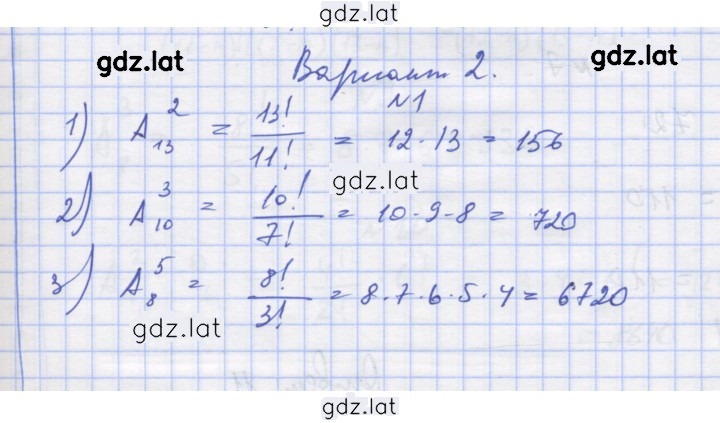 gdz.lat
gdz.lat Вариант 2. gdz.lat
№1
1) A₁₃² = 13!/11! = 12·13 = 156
gdz.lat
2) A₁₀³ = 10!/7! = 10·9·8 = 720
3) A₈⁵ = 8!/3! = 8·7·6·5·4 = 6720
gdz.lat
gdz.lat